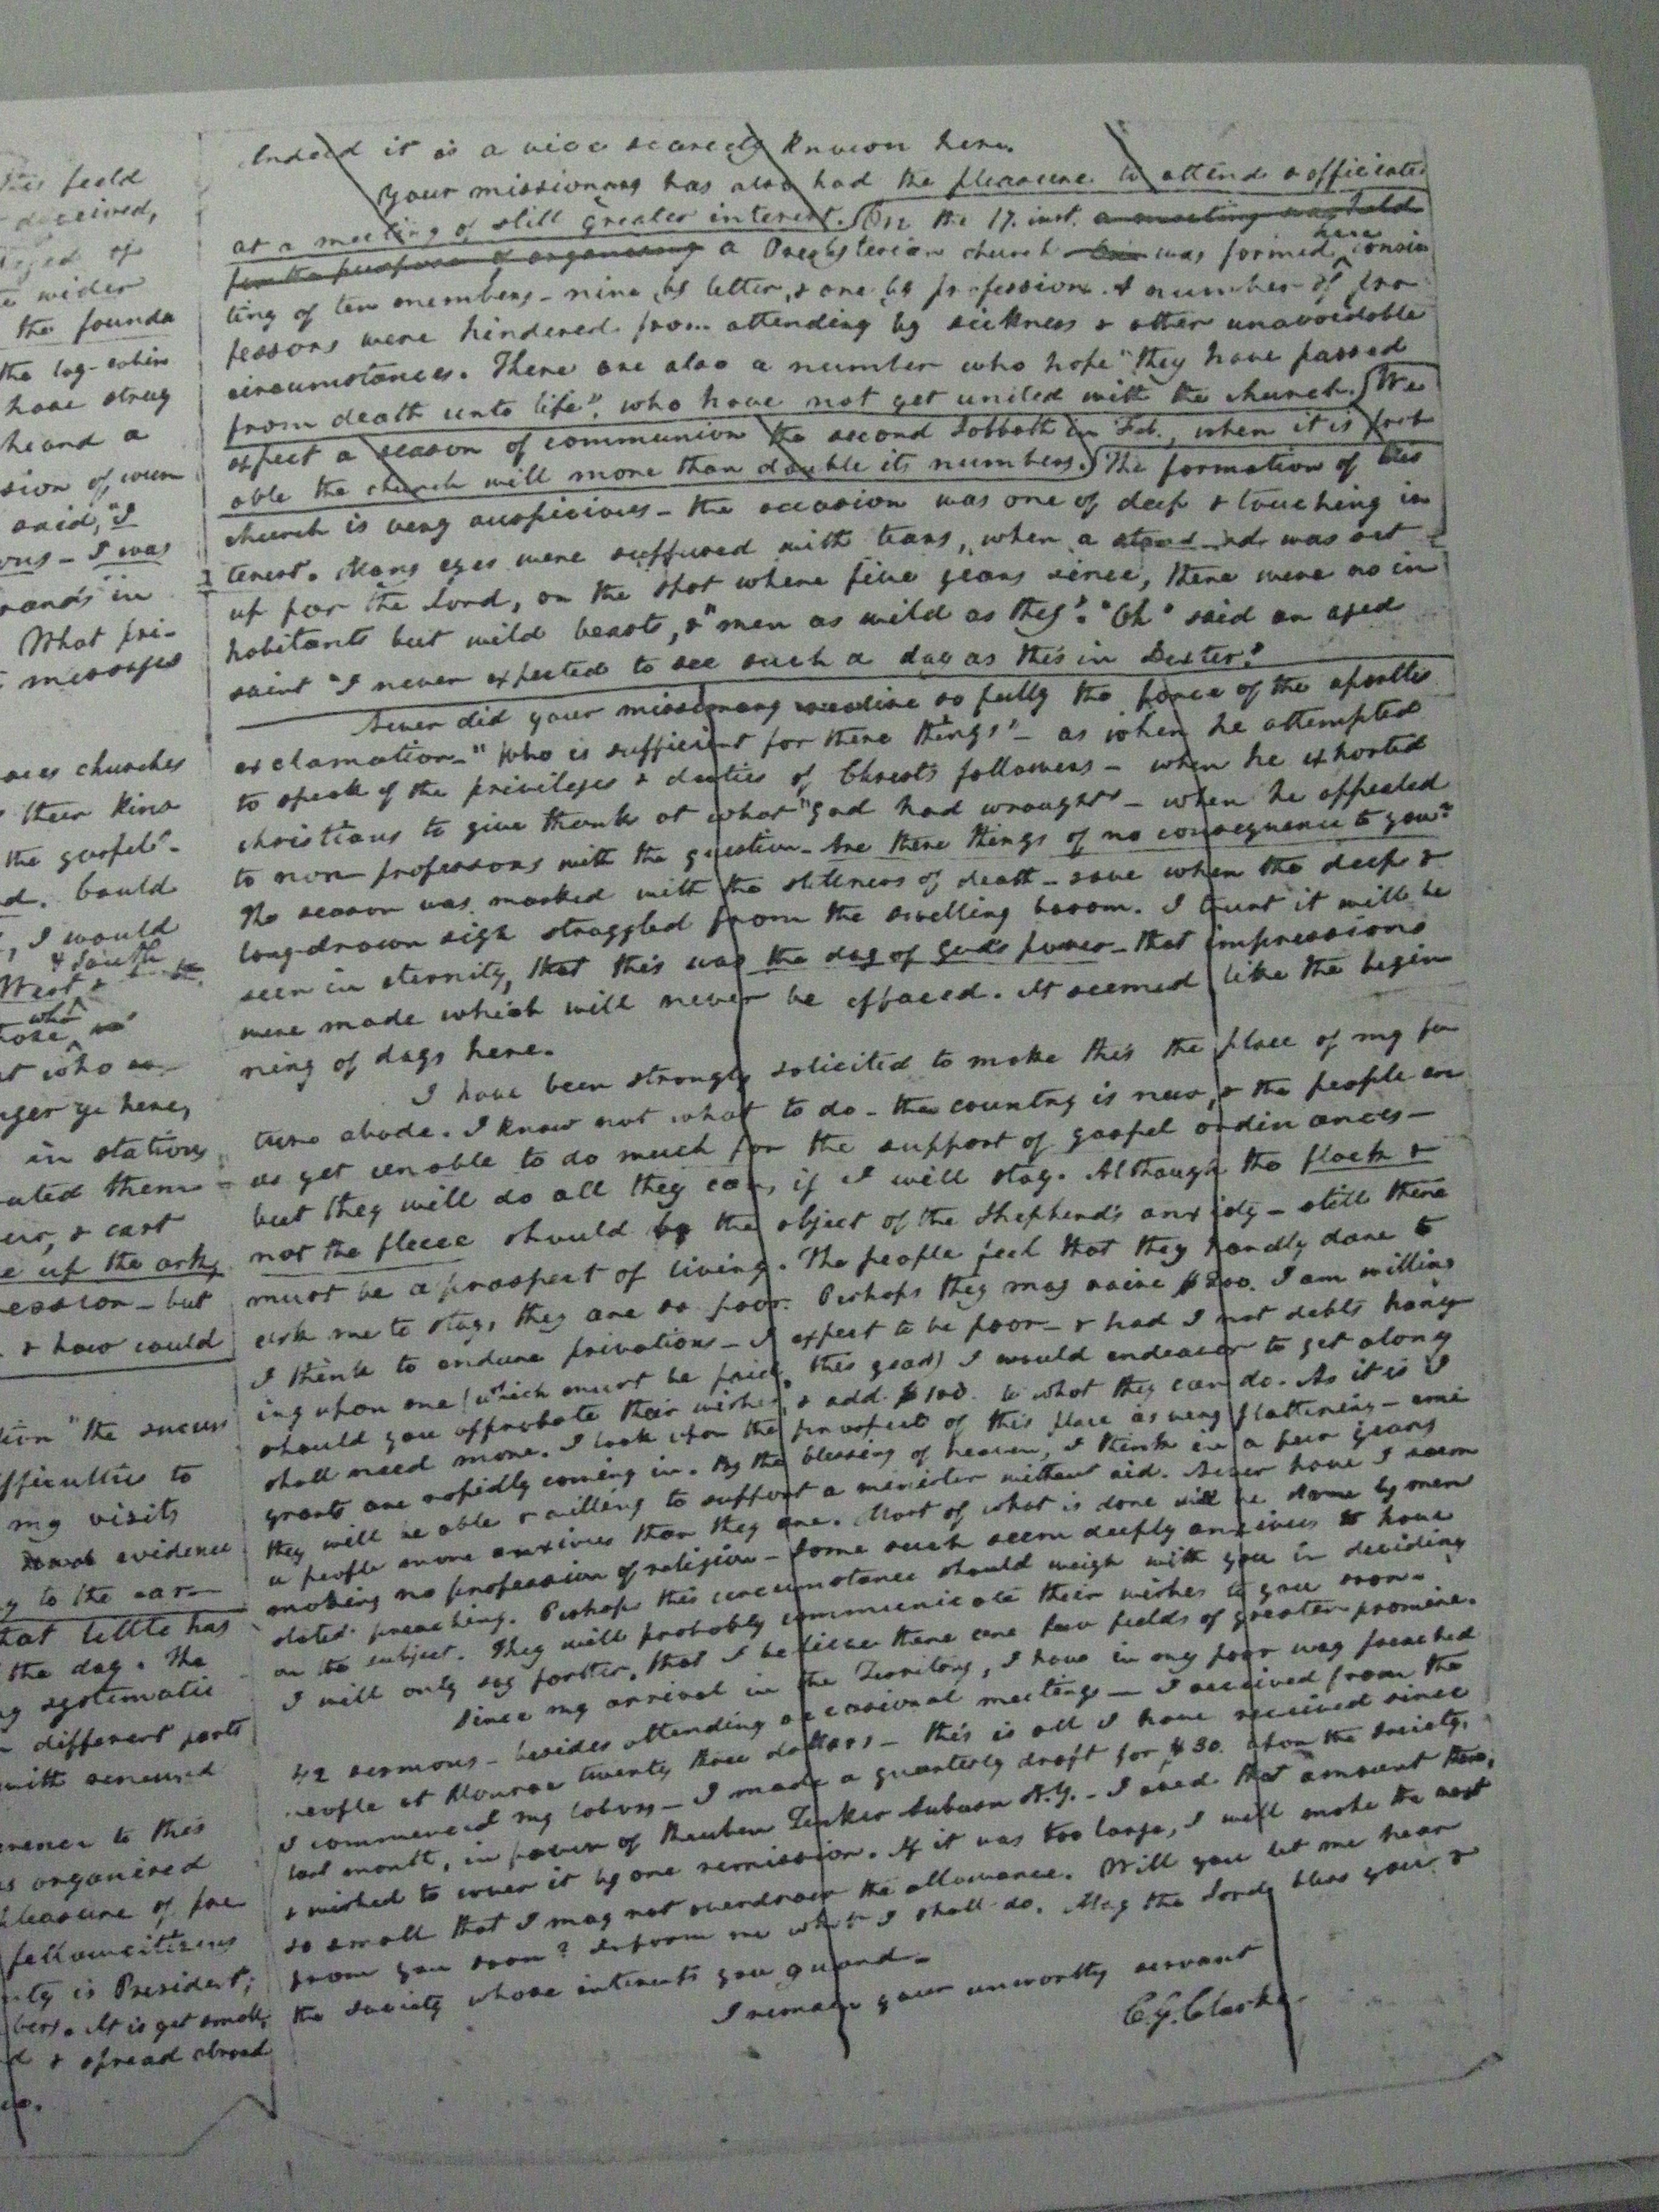 this field
deceived,
of
wider
the founda
the log-cabin
have strug
heard a
sion of
said, "I
I was
in
What pri-
messages
churches
their kind
the gospel" -
Could
, I would
& South
West &
who
those
who
nger ye here,
in stations
ated them -
, & cast
up the ark,
ession - but
& how could
tion "the
fficulties to
my visits
evidence
to the ear
that little has
the day. The
systematic
different parts
with renewed
erence to this
organised
pleasure of
fellowcitizens
nty is President;
bers. It is yet small,
& spread abroad
Indeed it is a vice scarcely known here.
Your missionary has also had the pleasure to attend & officiate
at a meeting of still greater interest. On the 17. inst. a meeting was held
for the purpose of organising a Presbyterian church was formed here consis
ting of ten members - nine by letter, & one by profession. A number of pro
fessors were hindered from attending by sickness & other unavoidable
circumstances. There are also a number who hope "they have passed
from death unto life", who have not yet united with the church. We
expect a season of communion the second Sabbath in Feb., when it is prob
able the church will more than double its numbers. The formation of this
church is very auspicious - the occasion was one of deep & touching in
terest. Many eyes were suffused with tears, when a standard was set
up for the Lord, on the spot where five years since, there were no in
habitants but wild beasts, & "men as wild as they". "Oh" said an aged
saint "I never expected to see such a day as this in Dexter."
Never did your missionary realise so fully the force of the apostles
exclamation - "Who is sufficient for these things" - as when he attempted
to speak of the privileges & duties of Christ's followers - when he exhorted
christians to give thank at what "God had wrought" - when he appealed
to non-professors with the question - Are these things of no consequence to you?
The season was marked with the stillness of death - save when the deep &
long-drawn sigh struggled from the swelling bosom. I trust it will be
seen in eternity, that this was the day of God's power - that impressions
were made which will never be effaced. It seemed like the begin
ning of days here.
I have been strongly solicited to make this the place of my fu
ture abode. I know not what to do - the country is new, & the people are
as yet unable to do much for the support of gospel ordinances -
but they will do all they can, if I will stay. Although the flock &
not the fleece should be the object of the Shepherd's anxiety - still there
must be a prospect of living. The people feel that they hardly dare to
ask me to stay, they are so poor. Perhaps they may raise $200. I am willing
I think to endure privations - I expect to be poor - & had I not debts hang
ing upon me (which must be paid, this year) I would endeavor to get along
should you approbate their wishes, & add $100. to what they can do. As it is I
shall need more. I look upon the prospect of this place as very flattering - emi
grants are rapidly coming in. By the blessing of heaven, I think in a few years
they will be able & willing to support a minister without aid. Never have I seen
a people more anxious than they are. Most of what is done will be done by men
making no profession of religion - some such seem deeply anxious to have
stated preaching. Perhaps this circumstance should weigh with you in deciding
on the subject. They will probably communicate their wishes to you soon -
I will only say farther, that I believe there are few fields of greater promise.
Since my arrival in the Territory, I have in my poor way preached
42 sermons - besides attending occasional meetings - I received from the
people at Monroe twenty three dollars - this is all I have received since
I commenced my labors - I made a quarterly draft for $80. upon the Society,
last month, in favor of Reuben Tinker Auburn N.Y. - I owed that amount there,
& wished to cover it by one remission. If it was too large, I will make the next
so small that I may not overdraw the allowance. Will you let me hear
from you soon? Inform me what I shall do. May the Lord bless you, &
the Society whose interests you guard -
I remain your unworthy servant
C.G. Clarke.